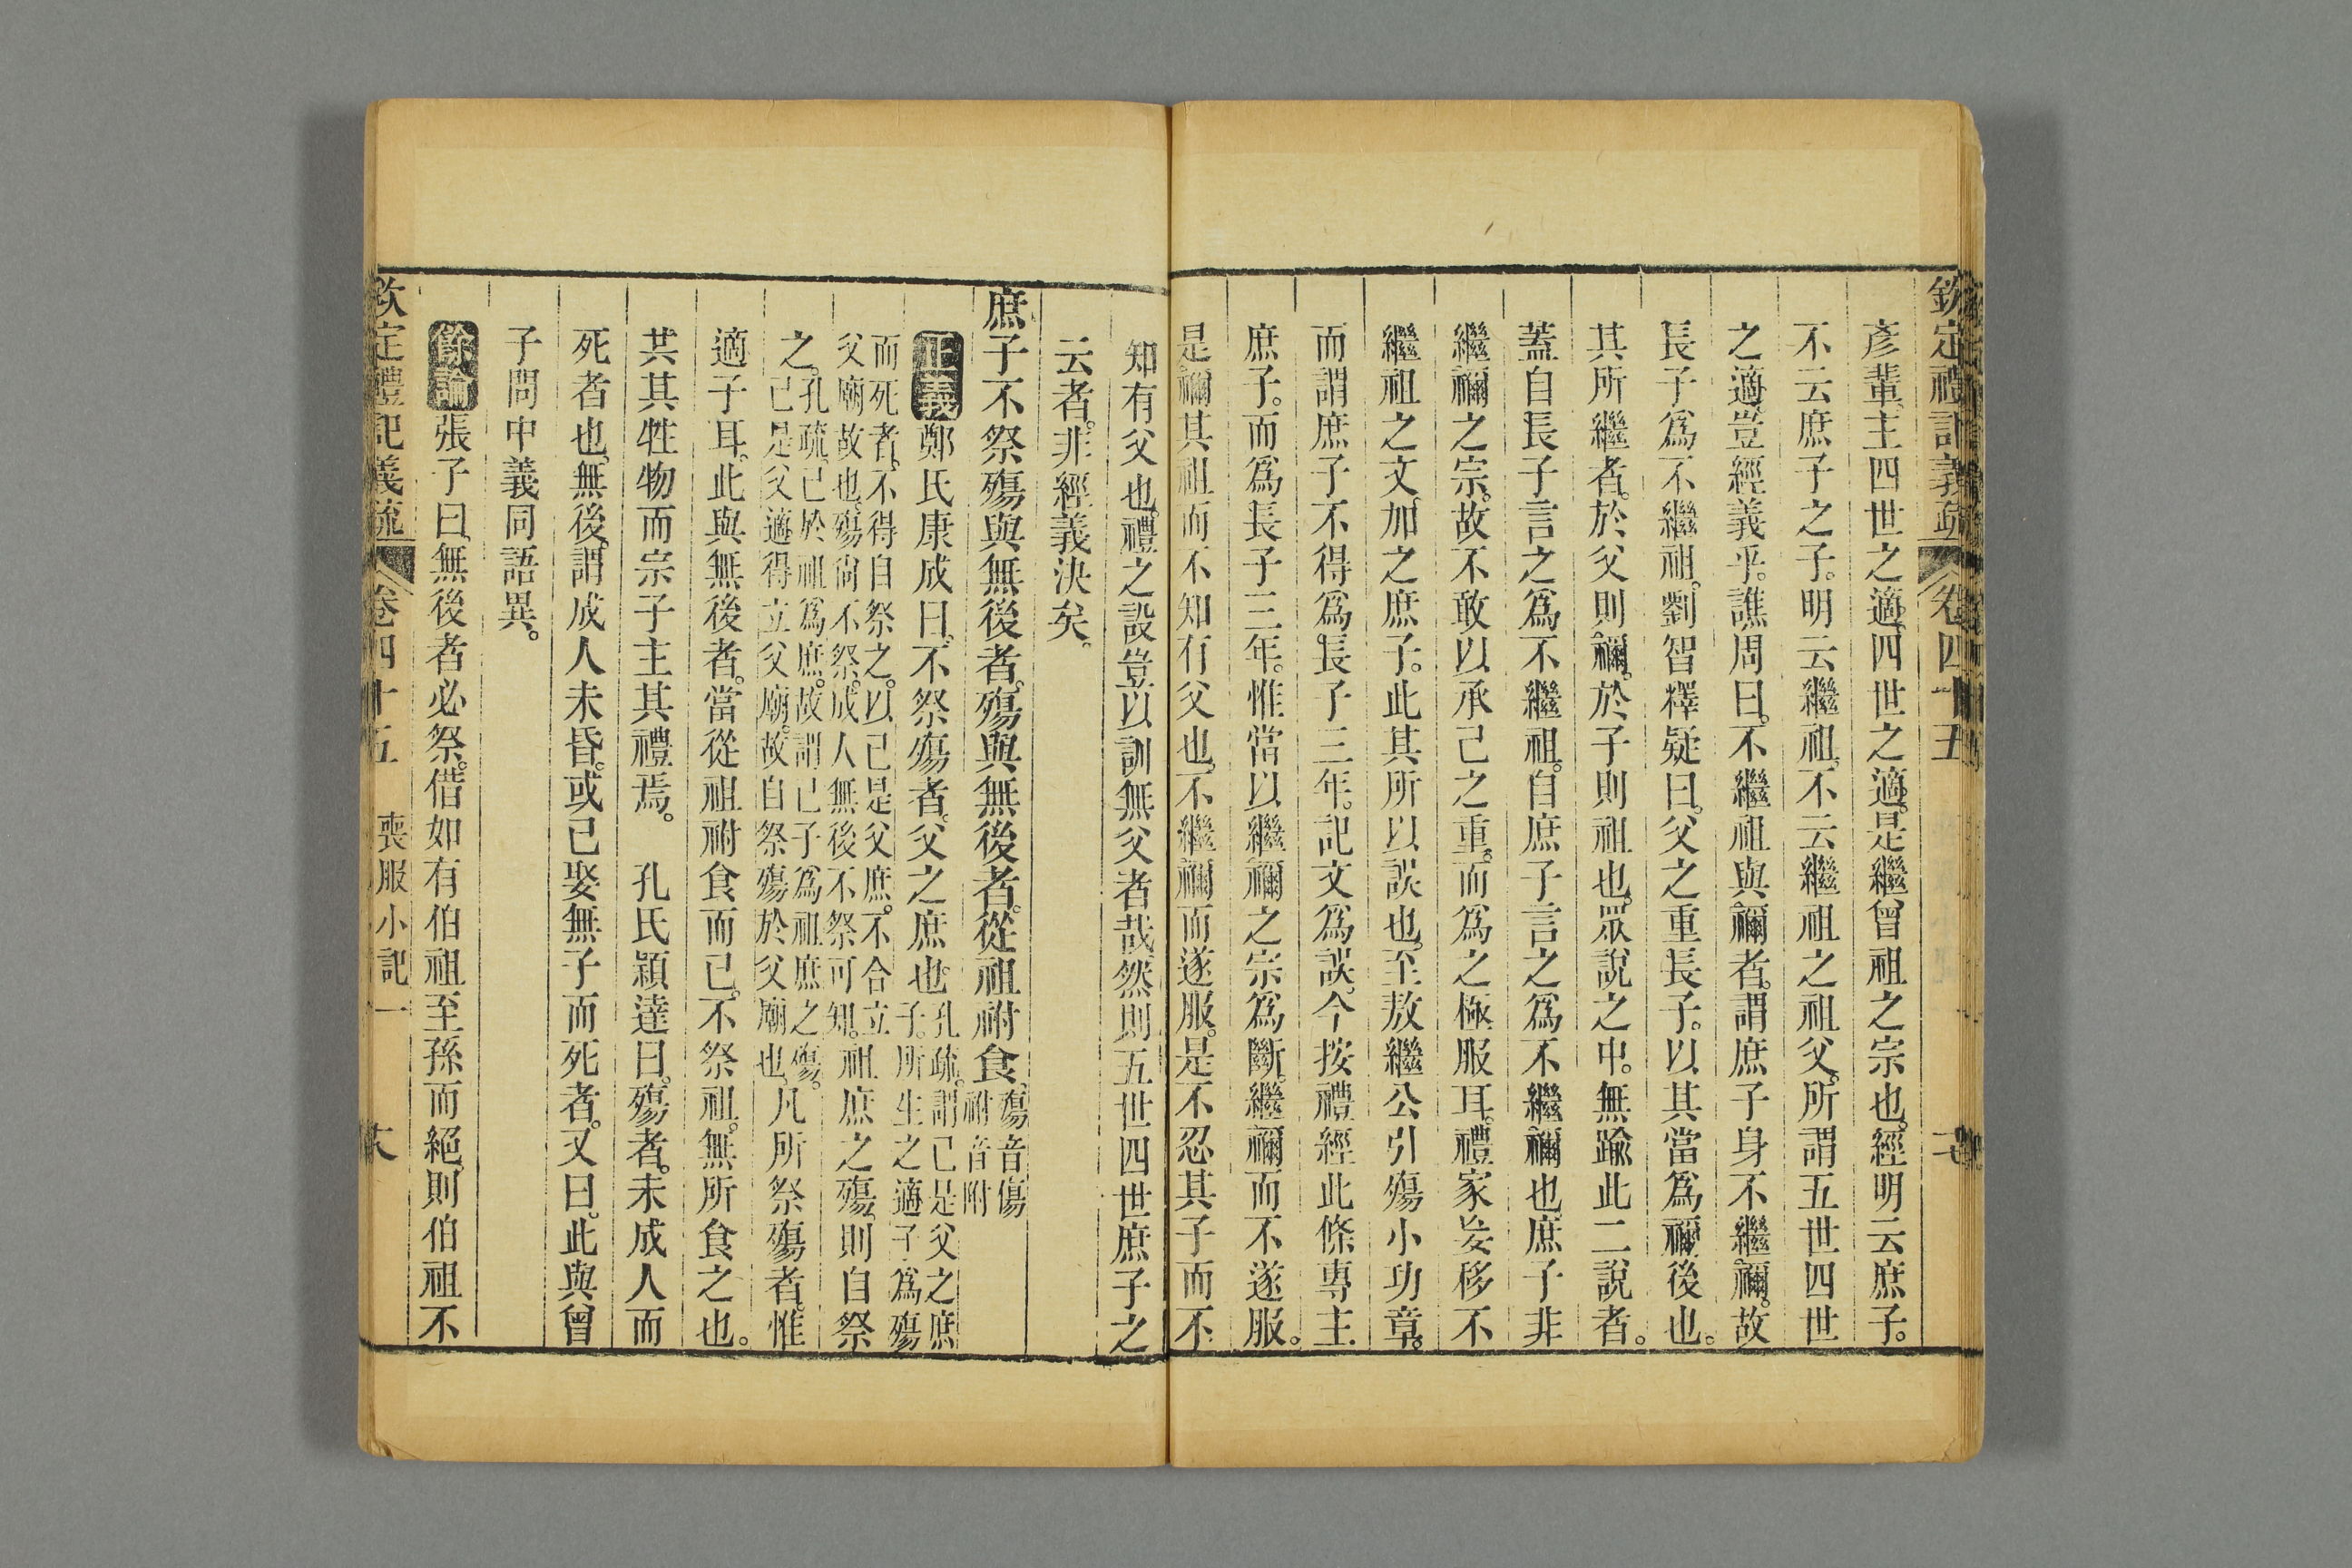 欽定禮記義疏 卷四十五
彥輩主四世之適四世之適是繼曾祖之宗也經明云庶子。
不云庶子之子。明云繼祖不云繼祖之祖父所謂五世四世
之適豈經義乎。譙周曰。不繼祖與禰者。謂庶子身不繼禰。故
長子爲不繼祖。劉智釋疑曰。父之重長子。以其當爲禰後也。
其所繼者。於父則禰。於子則祖也。眾說之中。無踰此二說者。
蓋自長子言之爲不繼祖。自庶子言之爲不繼禰也。庶子非
繼禰之宗。故不敢以承己之重。而爲之極服耳。禮家妄移不
繼祖之文。加之庶子。此其所以誤也。至敖繼公引殤小功章。
而謂庶子不得爲長子三年。記文爲誤。今按禮經此條專主
庶子。而爲長子三年。惟當以繼禰之宗爲斷。繼禰而不遂服。
是禰其祖而不知有父也。不繼禰而遂服。是不忍其子而不
知有父也。禮之設豈以訓無父者哉。然則五世四世庶子之
云者。非經義決矣。
庶子不祭殤與無後者。殤與無後者。從祖祔食。殤音傷祔音附
正義鄭氏康成曰。不祭殤者。父之庶也。孔疏。謂己是父之庶子。所生之適子爲殤
而死者。不得自祭之。以己是父庶。不合立父廟故也。殤尚不祭。成人無後不祭可知。祖庶之殤則自祭
之。孔疏。己於祖爲庶。故謂己子爲祖庶之殤。己是父適得立父廟。故自祭殤於父廟也。凡所祭殤者。惟
適子耳。此與無後者。當從祖祔食而已。不祭祖。無所食之也。
共其牲物而宗子主其禮焉。 孔氏穎達曰。殤者。未成人而
死者也。無後。謂成人未昏。或已娶無子而死者。又曰。此與曾
子問中義同語異。
餘論張子曰。無後者必祭。借如有伯祖至孫而絕。則伯祖不
欽定禮記義疏 卷四十五 喪服小記一